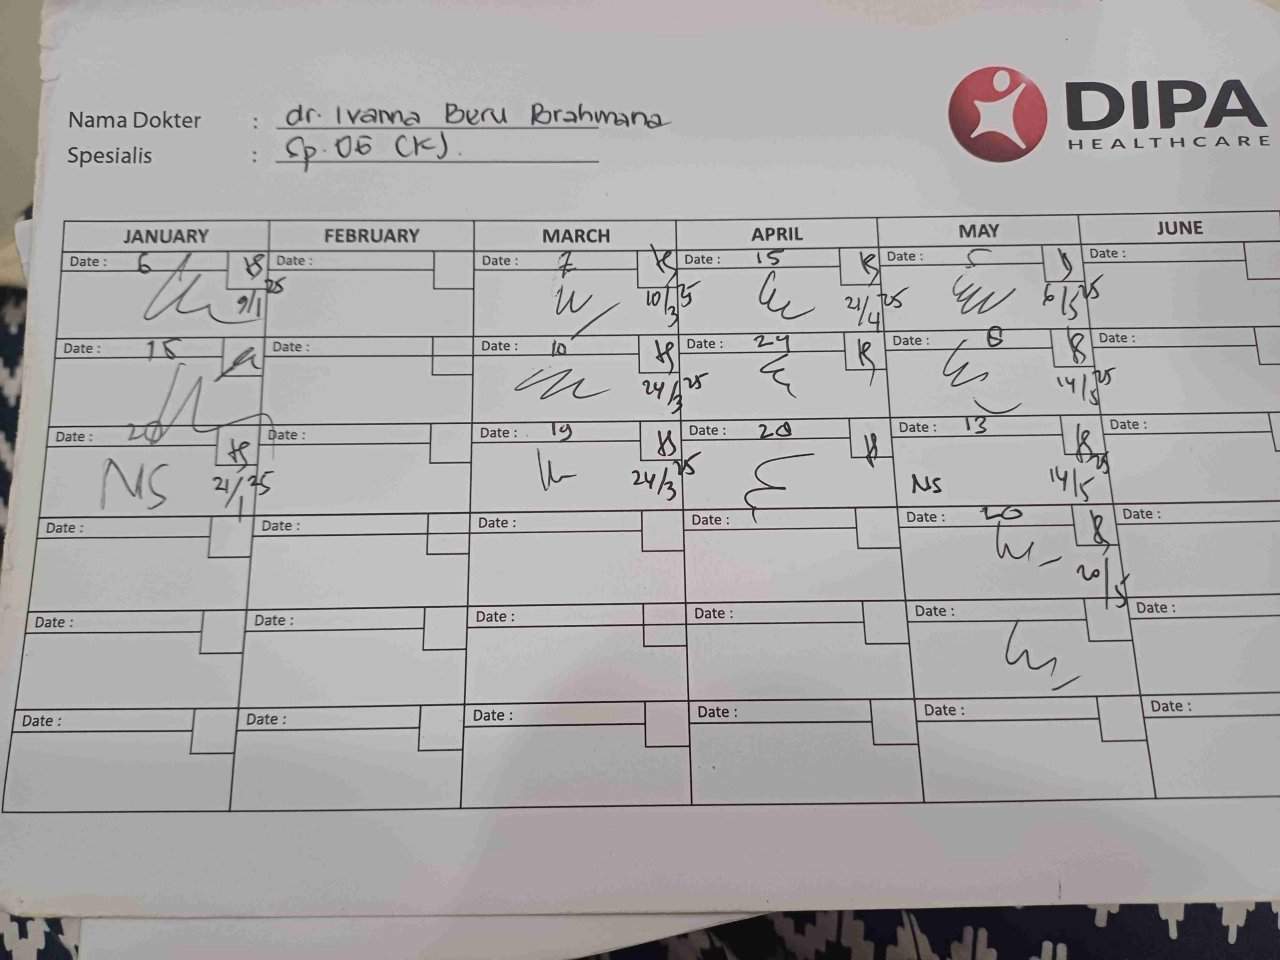 DIPA
HEALTHCARE
Nama Dokter : dr. Ivanna Beru Brahmana
Spesialis : Sp. OG (K).
JANUARY FEBRUARY MARCH APRIL MAY JUNE
Date : 6 Date : Date : 7 Date : 15 Date : 5 Date :
9/1 25 10/3 25 21/4 25 6/5 25
Date : 15 Date : Date : 10 Date : 24 Date : 8 Date :
24/3 25 14/5 25
Date : 20 Date : Date : 19 Date : 28 Date : 13 Date :
NS 21/1 25 24/3 25 NS 14/5 25
Date : Date : Date : Date : Date : 20 Date :
20/5
Date : Date : Date : Date : Date : Date :
Date : Date : Date : Date : Date : Date :